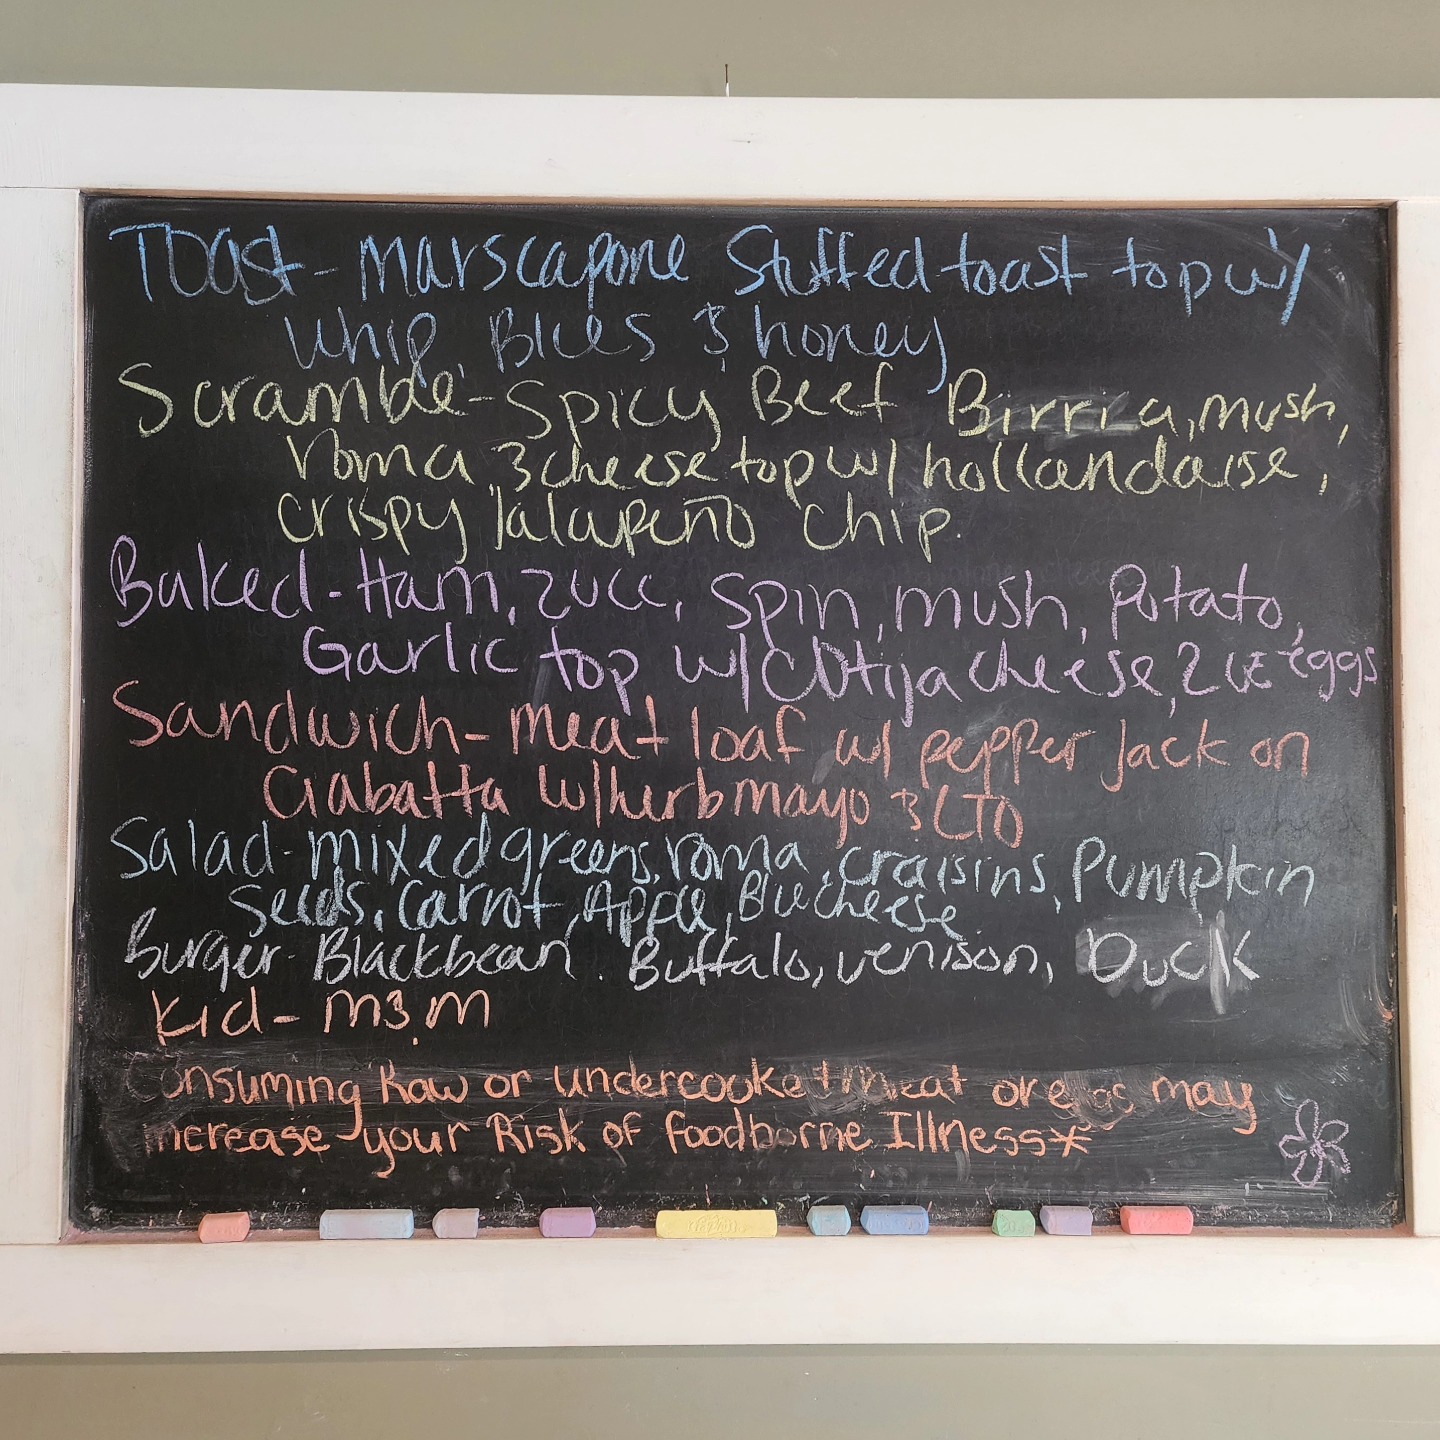 Toast - Marscapone Stuffed toast top w/
whip, Blues & honey
Scramble - Spicy Beef Birria, mush,
roma, 3 cheese top w/ hollandaise,
crispy Jalapeño chip.
Baked - Ham, zucc, spin, mush, Potato,
Garlic top w/ Cotija cheese, 2 OE eggs
Sandwich - meat loaf w/ pepper jack on
Ciabatta w/ herb mayo & LTO
Salad - mixed greens, roma, craisins, Pumpkin
Seeds, Carrot, Apple, Blue cheese
Burger - Blackbean, Buffalo, venison, Duck
Kid - M&M
Consuming Raw or undercooked Meat or eggs may
increase your Risk of foodborne Illness*